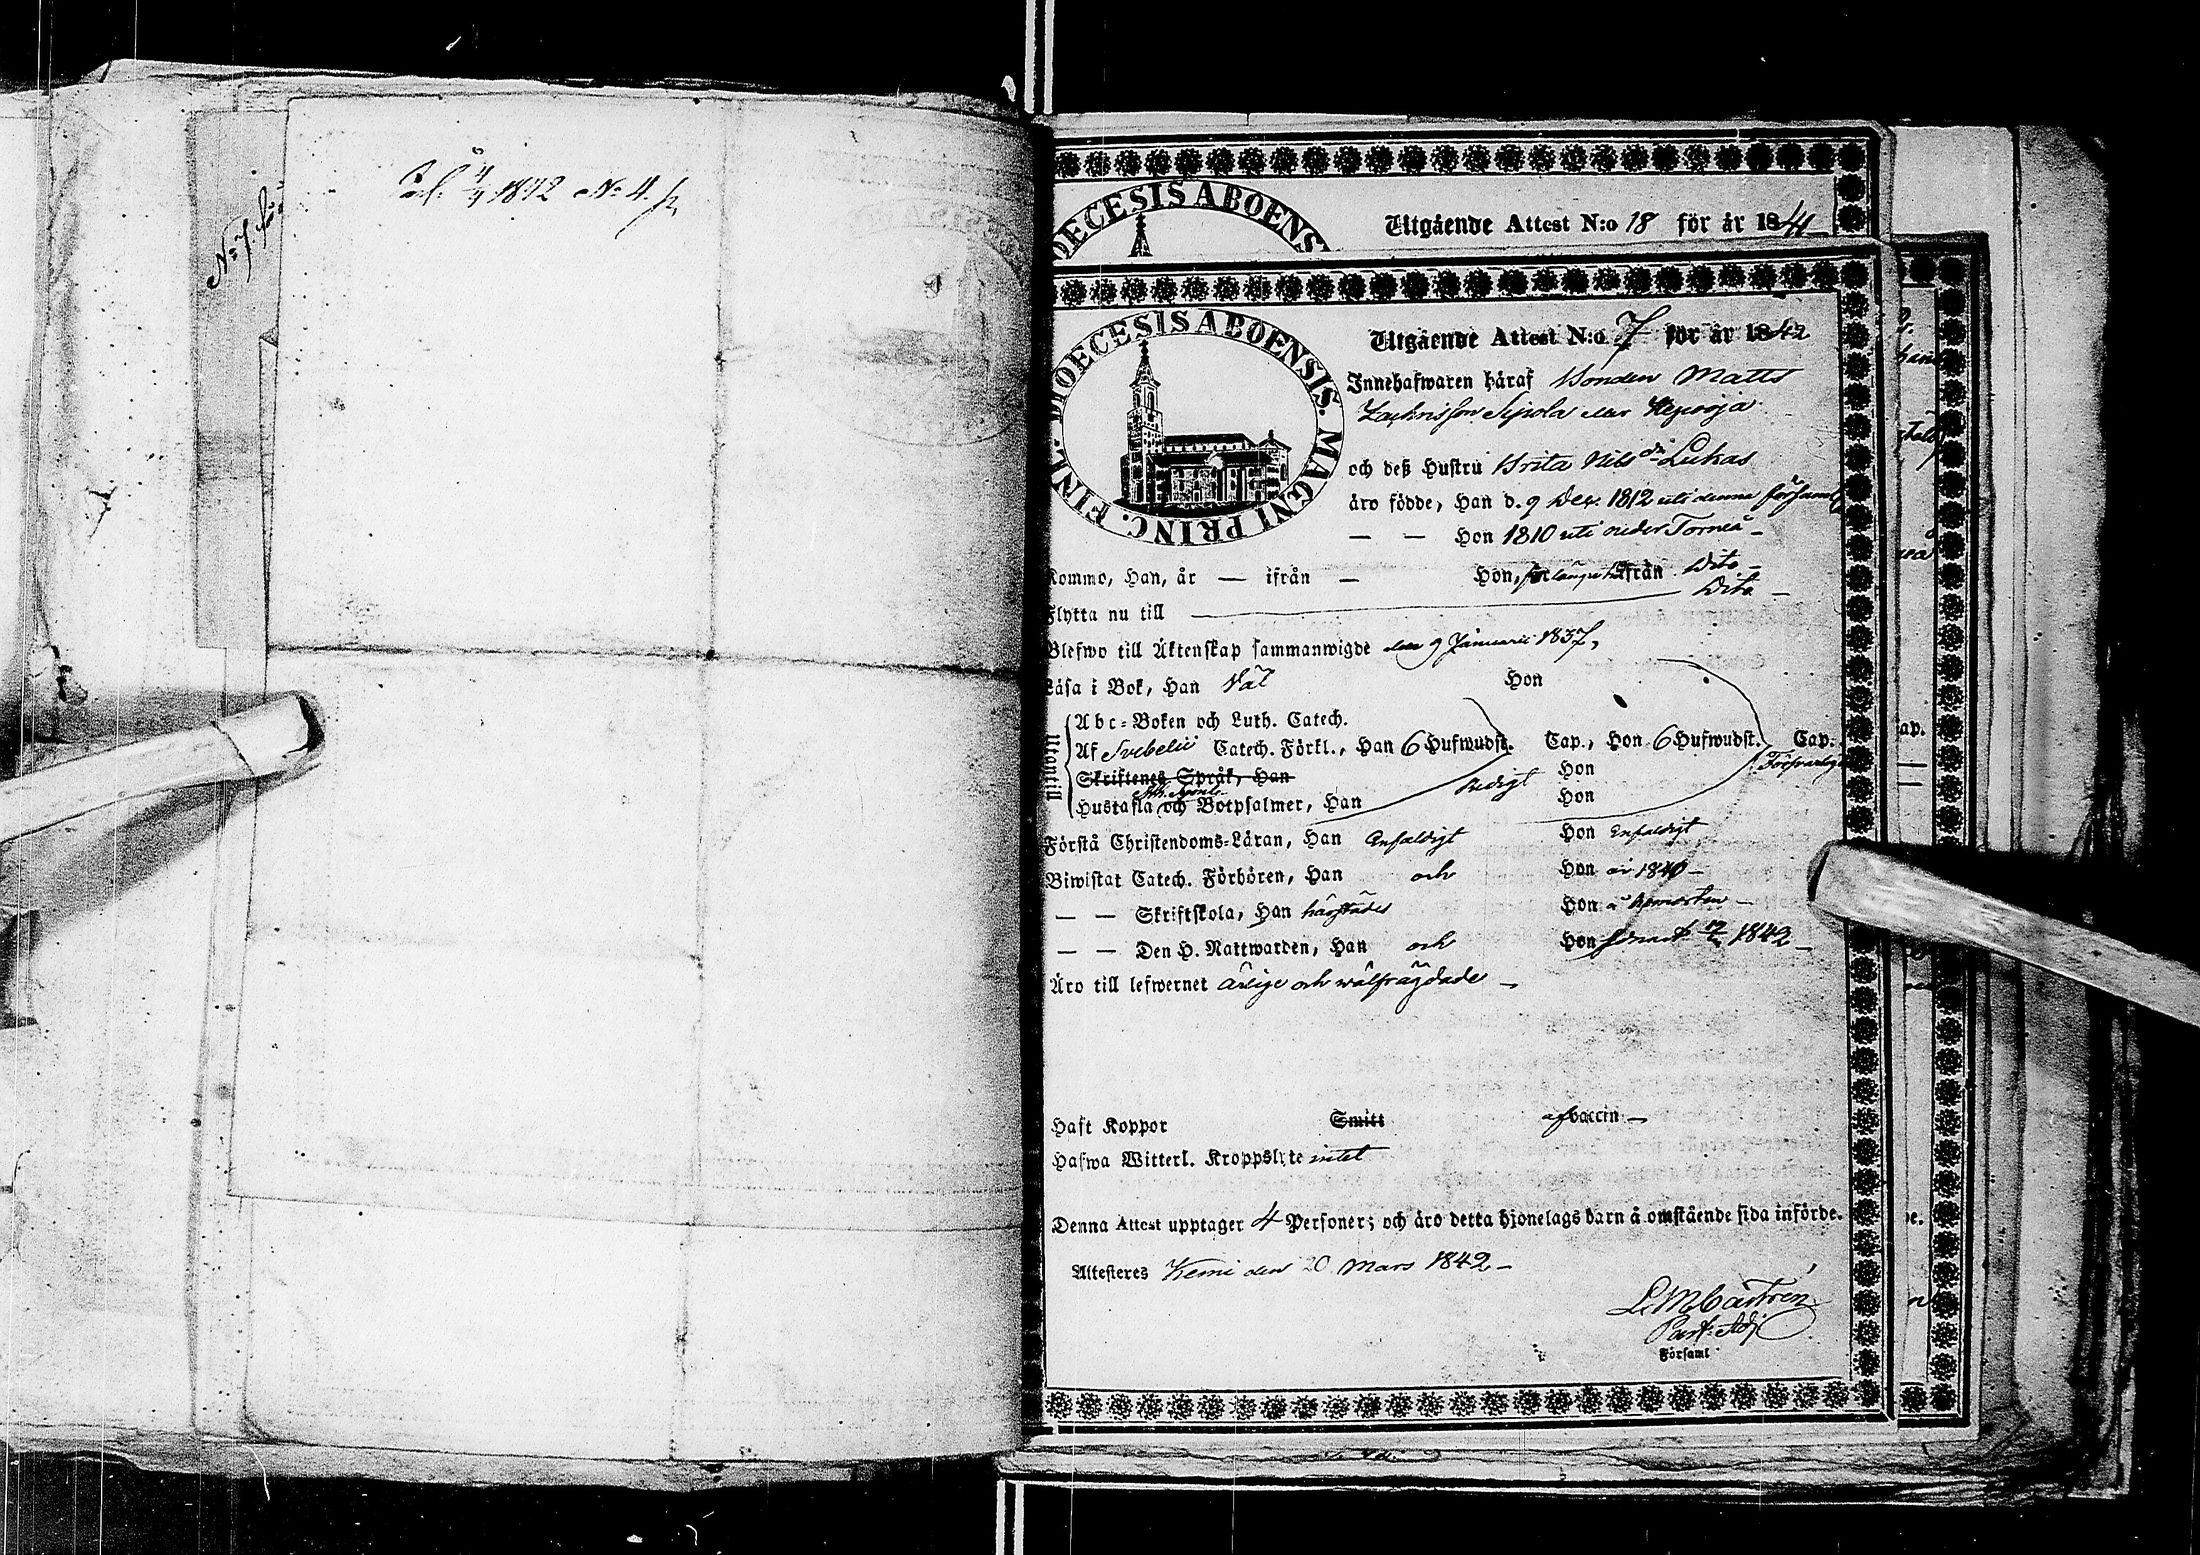 1842 No 4.
No 7 för
DIOECESIS ABOENS
Utgående Attest N:o 18 för år 1841
DIOECESIS ABOENSIS. MAGNI PRINC. FINL.
Utgående Attest N:o 7 för år 1842
Innehafwaren håraf Bonden Matts
Zachrisson Sipola eller
och deß Hustru Brita Nils dr Lukas
äro födde, Han d. 9 Dec. 1812 uti denna församl
— — Hon 1810 uti neder Torneå —
Kommo, Han, år — ifrån — Hon, för länge ifrån Dito —
Flytta nu till Dito —
Blefwo till Äktenskap sammanwigde den 9 Januarii 1837,
Läsa i Bok, Han Väl Hon
Utantill
Abc-Boken och Luth. Catech.
Af Svebelii Catech. Förkl., Han 6 Hufwudst. Cap., Hon 6 Hufwudst. Cap.
Skriftenes Språk, Han Hon
Hustafla och Botpsalmer, Han Redigt Hon
Förstå Christendoms-Läran, Han Enfaldigt Hon Enfaldigt
Biwistat Catech. Förhören, Han och Hon år 1840 —
— — Skriftskola, Han härstädes Hon
— — Den H. Nattwarden, Han och Hon 1842 —
Äro till lefwernet ärlige och wälfrägdade —
Haft Koppor Smitt af vaccin —
Hafwa Witterl. Kroppslyte intet
Denna Attest upptager 4 Personer; och äro detta hjonelags barn å omstående sida införde.
Attesteres Kemi den 20 Mars 1842 —
L. M. Castrén
Past. Adj
Församl